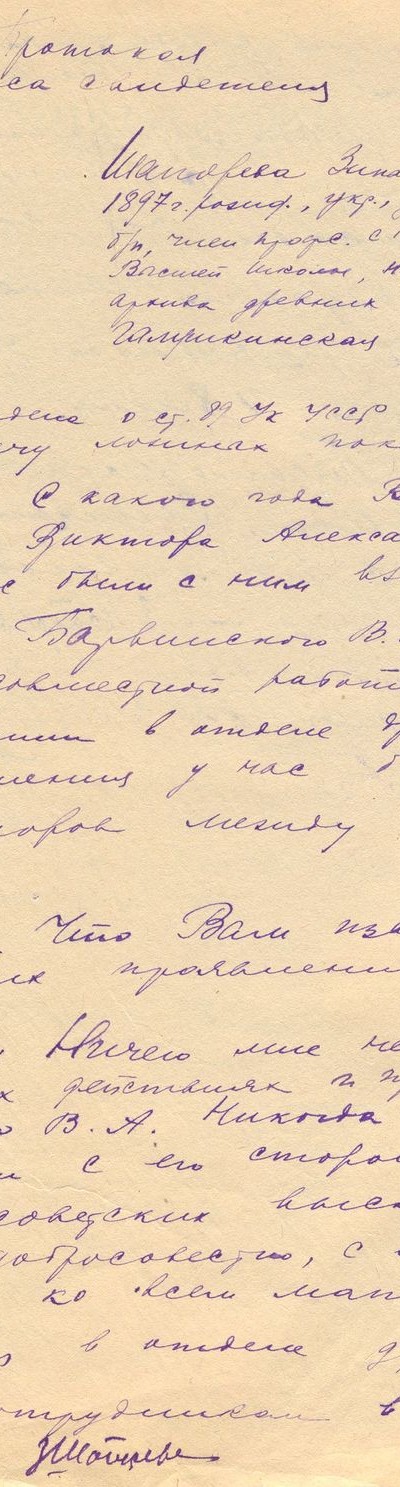 Протокол
са свидетеля
Зина
1897 г. рожд., укр.,
б/п, член профс. с
Высшей школы, н
архива древних
дена о ст. 89 УК УССР
чу ложных пок
С какого года В
Виктора Алекса
с были с ним вз
Барвинского В.
совместной работ
нии в отделе д
шения у нас б
норов между
Что Вам изв
их проявлени
Ничего мне не
х действиях и п
о В. А. Никогда
и с его сторон
советских выск
добросовестно, с
ко всем мат
в отделе д
отрудником в